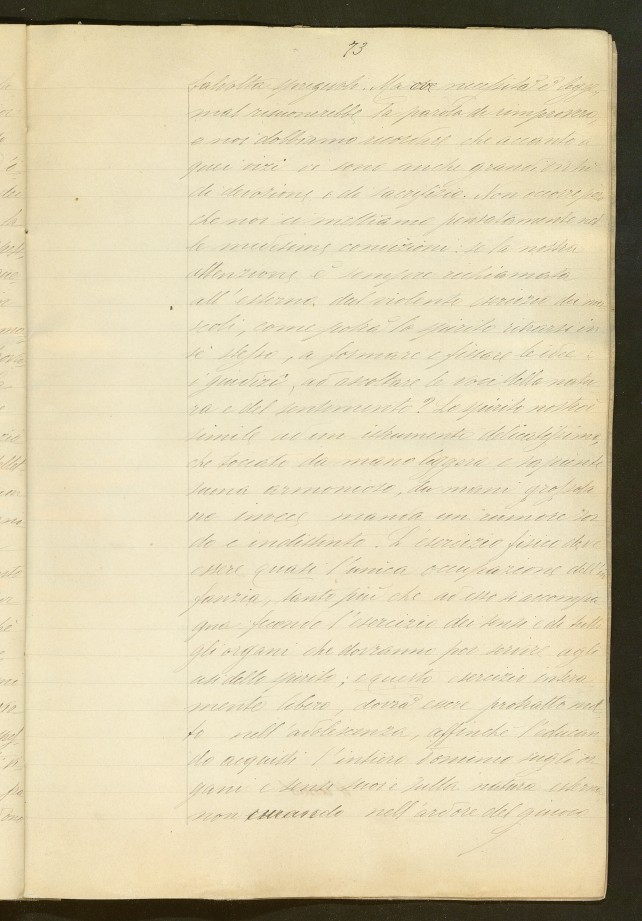 73
talvolta spregevole. Ma ove necessità è legge
mal risuonerebbe la parola di rimprovero,
e noi dobbiamo ricordare che accanto a
quei vizi vi sono anche grandi virtù
di devozione e di sacrifizio. Non occorre per
che noi ci mettiamo pensatamente nel
le medesime condizioni: se la nostra
attenzione è sempre richiamata
all'esterno dal violento esercizio dei mu
scoli, come potrà lo spirito ritrarsi in
sè stesso, a formare e fissare le idee
i giudizi, ad ascoltare la voce della natu
ra e del sentimento? Lo spirito nostro
simile ad un istrumento delicatissimo,
che toccato da mano leggera e sapiente
suona armonioso, da mani grossola
ne invece manda un rumore sor
do e indistinto. L'esercizio fisico deve
essere quasi l'unica occupazione dell'in
fanzia, tanto più che ad esso si accompa
gna fecondo l'esercizio dei sensi e di tutti
gli organi che dovranno poi servire agli
usi dello spirito; e questo esercizio intera
mente libero, dovrà essere protratto mol
to nell'adolescenza, affinchè l'educan
do acquisti l'intiero dominio sugli or
gani e sensi suoi e sulla natura esterna
non curando nell'ardore del giuoco